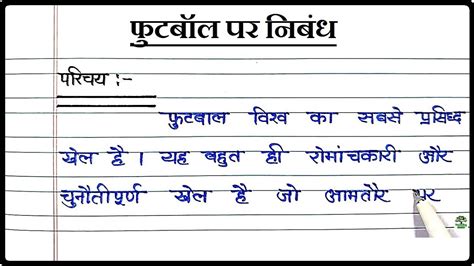 फुटबॉल पर निबंध
परिचय :-
फुटबाल विश्व का सबसे प्रसिध्द
खेल है । यह बहुत ही रोमांचकारी और
चुनौतीपूर्ण खेल है जो आमतौर पर